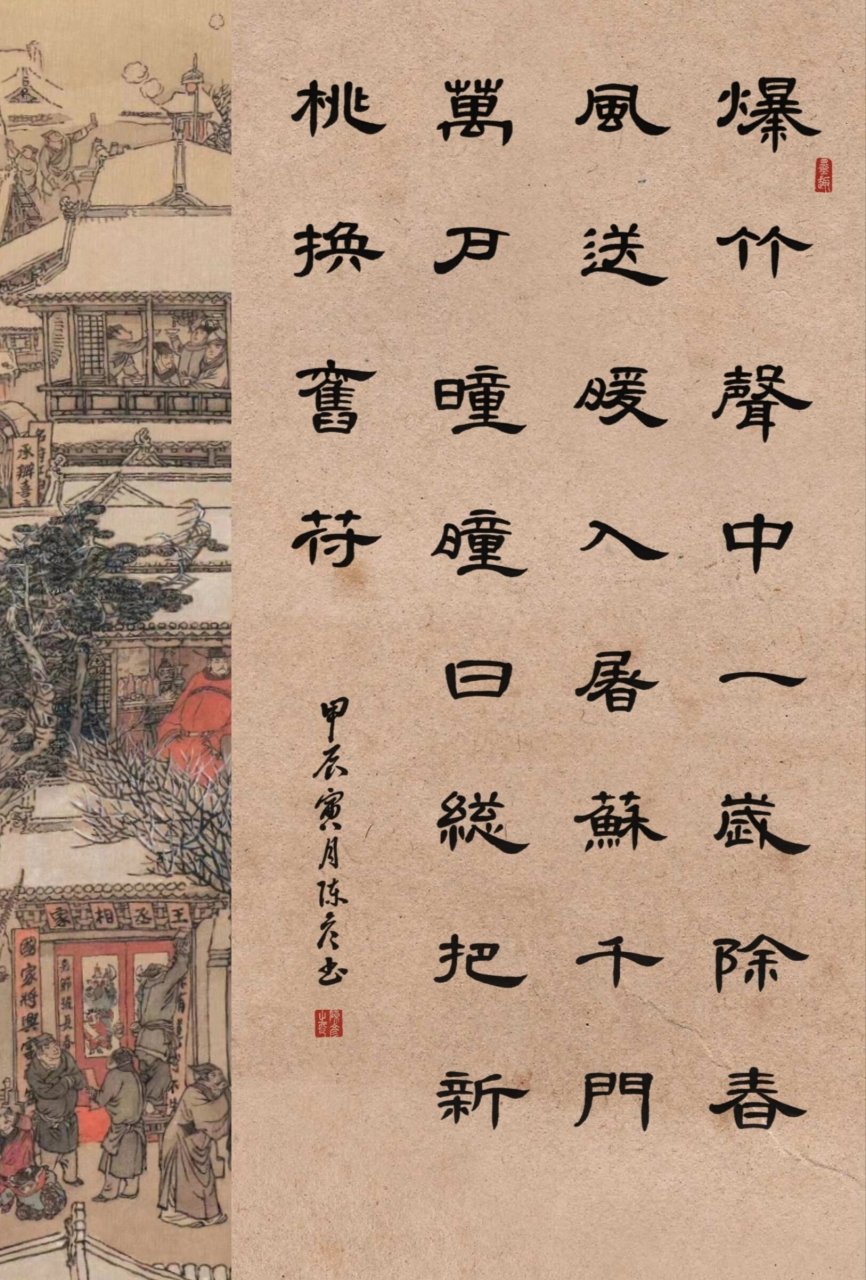 爆竹聲中一歲除春
風送暖入屠蘇千門
萬户曈曈日總把新
桃換舊符
甲辰寅月陈彦书
承辦喜
王丞相家
國家將興